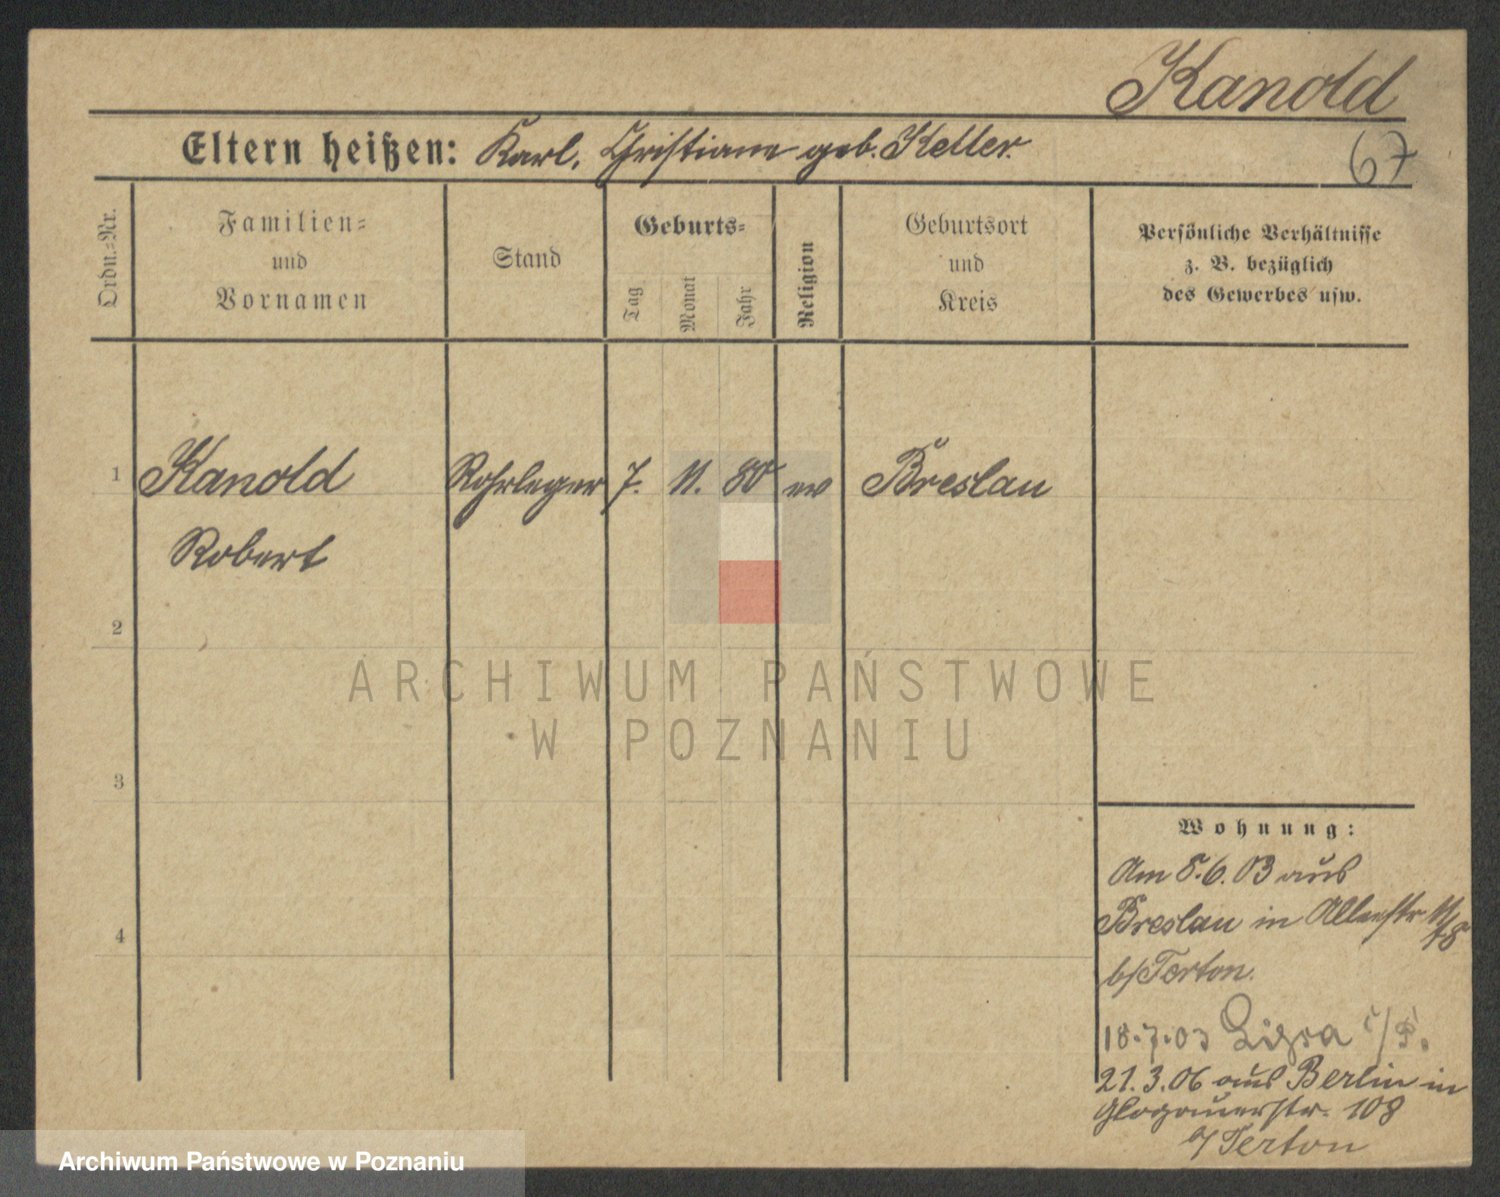 Kanold
Eltern heißen: Karl, Christiane geb. Keller.
67
Ordn.=Nr.
Familien=
und
Vornamen
Stand
Geburts=
Tag
Monat
Jahr
Religion
Geburtsort
und
Kreis
Persönliche Verhältnisse
z. B. bezüglich
des Gewerbes usw.
1 Kanold Rohrleger 7. 11. 80 ev Breslau
Robert
2
3
4
ARCHIWUM PAŃSTWOWE
W POZNANIU
Wohnung:
Am 8.6.03 aus
Breslau in Alleestr
b/Terton.
18.7.03
21.3.06 aus Berlin in
Glogauerstr. 108
b/Terton
Archiwum Państwowe w Poznaniu